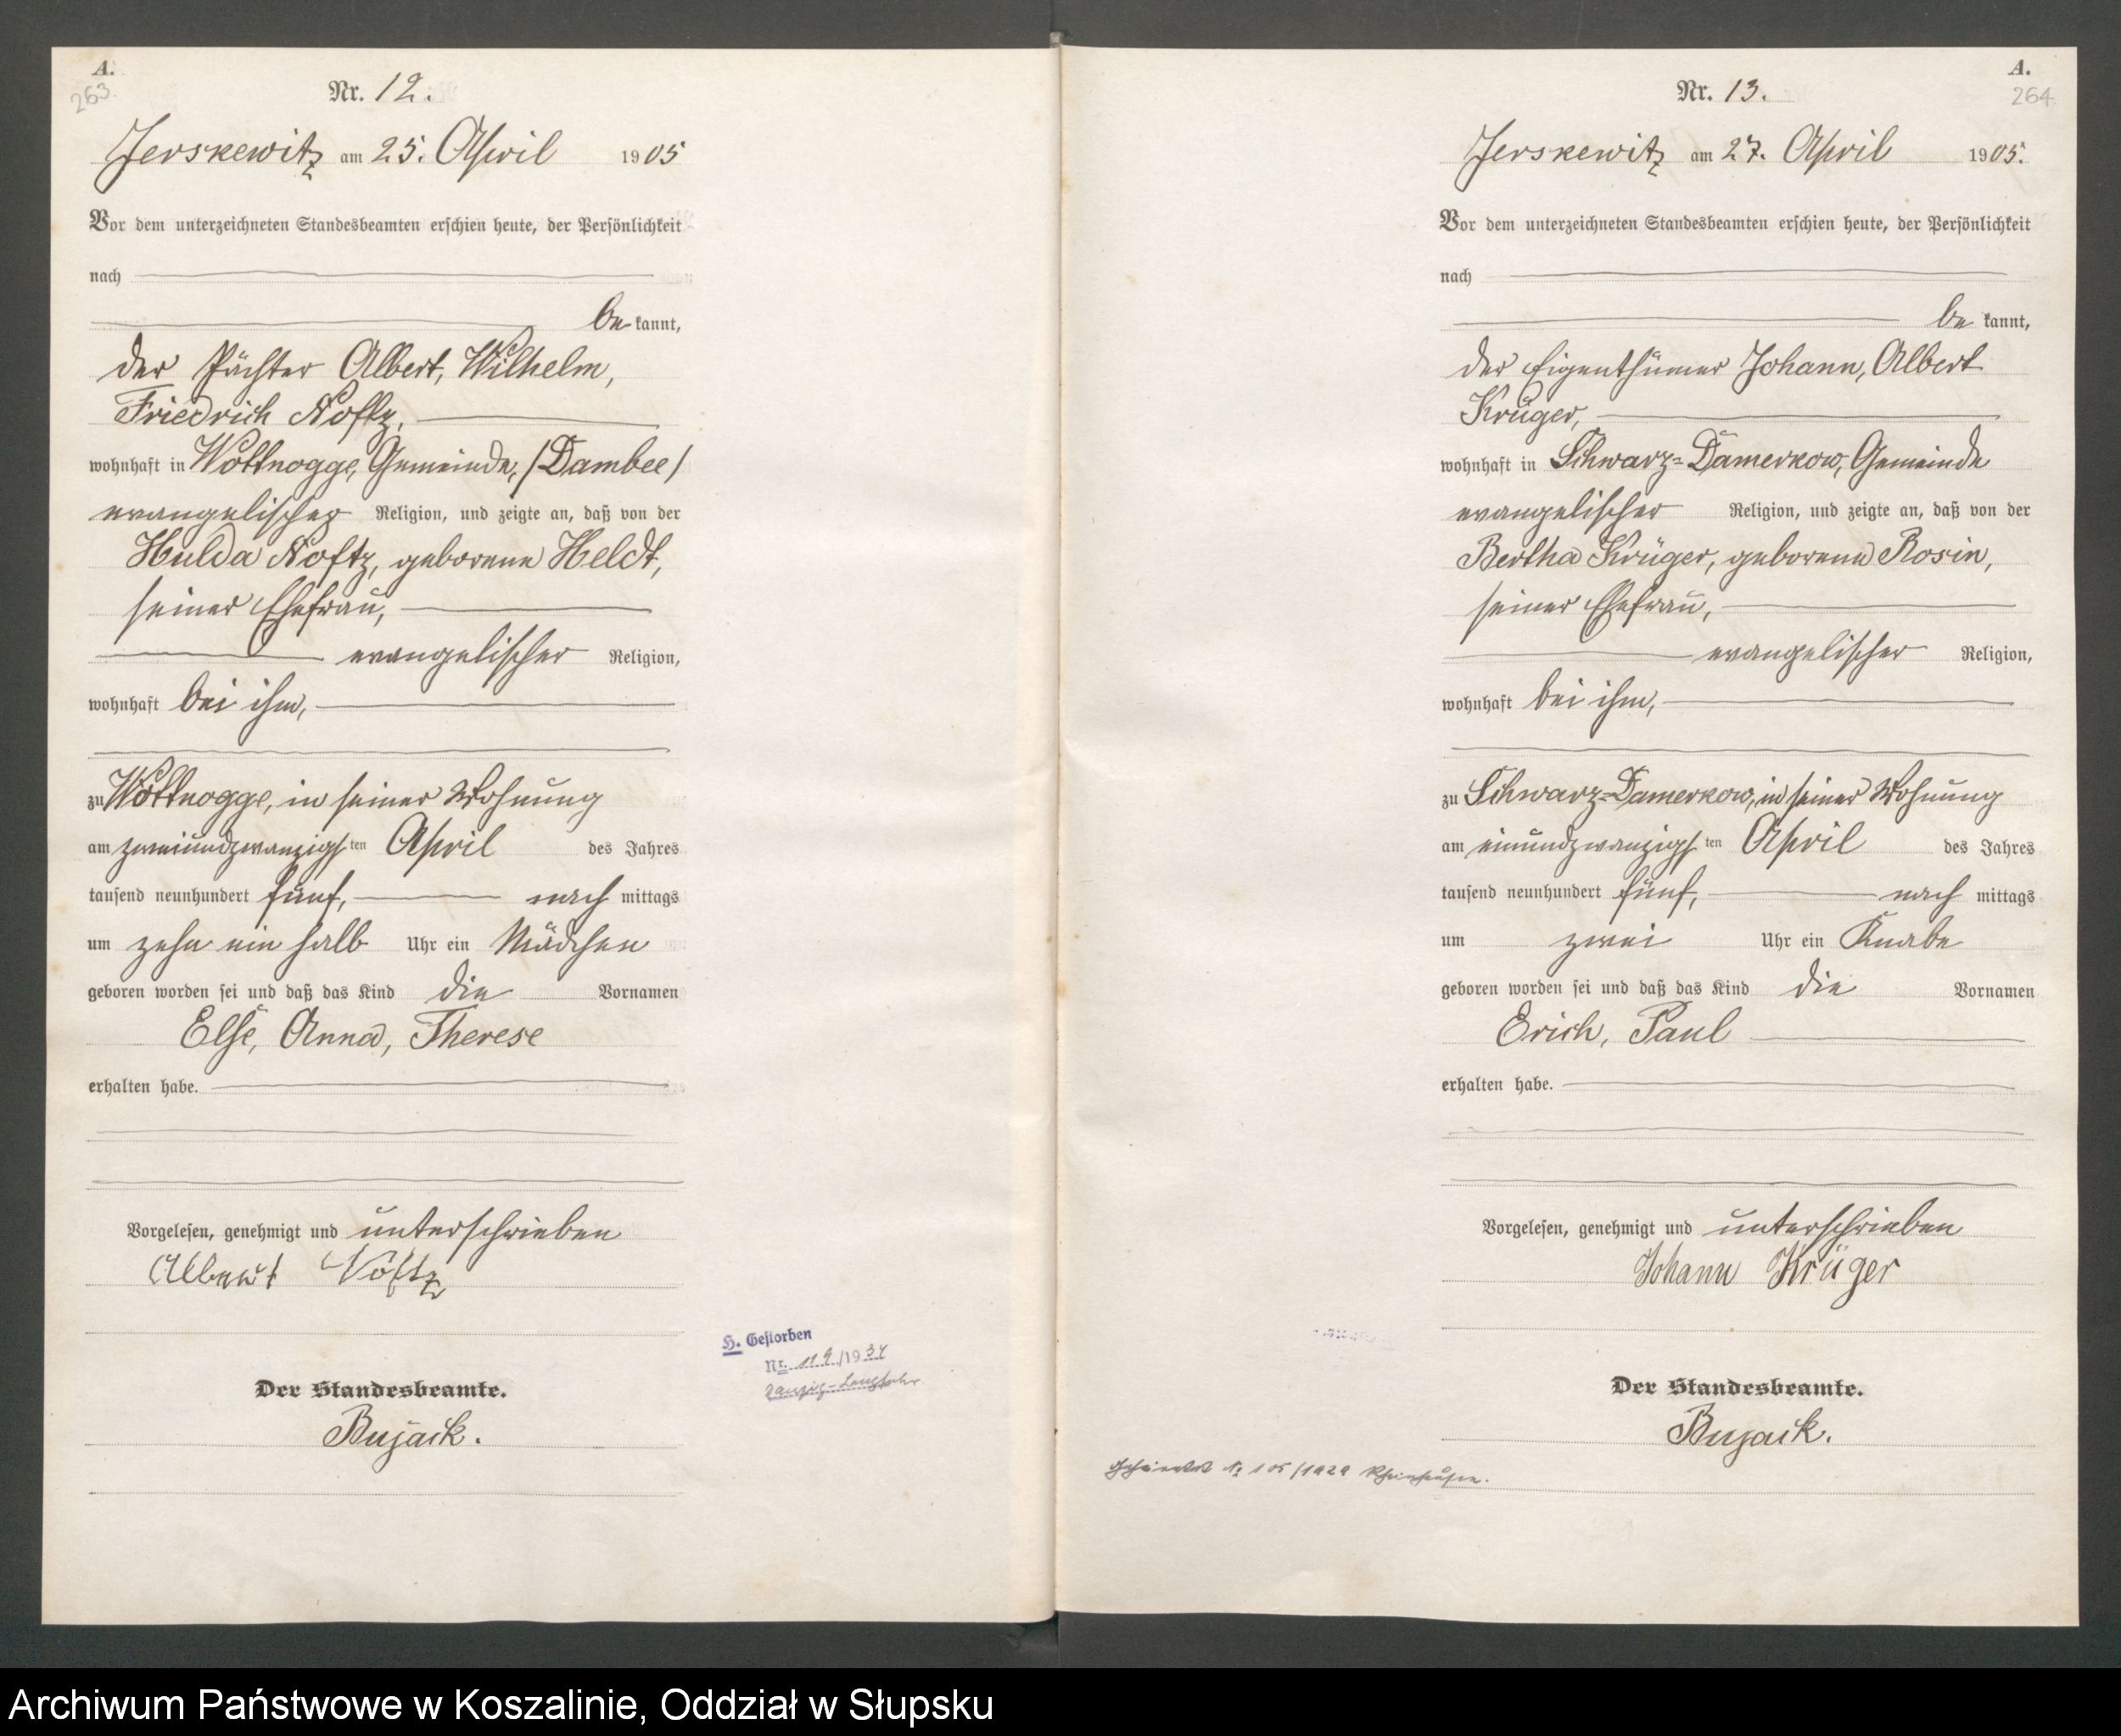 A.
263.
Nr. 12.
Jerskewitz am 25. April 1905
Vor dem unterzeichneten Standesbeamten erschien heute, der Persönlichkeit
nach
be kannt,
der Pächter Albert, Wilhelm,
Friedrich Noftz,
wohnhaft in Wottnogge, Gemeinde, /Dambee/
evangelischer Religion, und zeigte an, daß von der
Hulda Noftz, geborene Heldt,
seiner Ehefrau,
evangelischer Religion,
wohnhaft bei ihm,
zu Wottnogge, in seiner Wohnung
am zweiundzwanzigsten April des Jahres
tausend neunhundert fünf, nach mittags
um zehn ein halb Uhr ein Mädchen
geboren worden sei und daß das Kind die Vornamen
Else, Anna, Therese
erhalten habe.
Vorgelesen, genehmigt und unterschrieben
Albert Noftz
H. Gestorben
Nr. 119/1934
Danzig-Langfuhr
Der Standesbeamte.
Bujack.
A.
264
Nr. 13.
Jerskewitz am 27. April 1905.
Vor dem unterzeichneten Standesbeamten erschien heute, der Persönlichkeit
nach
be kannt,
der Eigenthümer Johann, Albert
Krüger,
wohnhaft in Schwarz-Damerkow, Gemeinde
evangelischer Religion, und zeigte an, daß von der
Bertha Krüger, geborene Rosin,
seiner Ehefrau,
evangelischer Religion,
wohnhaft bei ihm,
zu Schwarz-Damerkow, in seiner Wohnung
am einundzwanzigsten April des Jahres
tausend neunhundert fünf, nach mittags
um zwei Uhr ein Knabe
geboren worden sei und daß das Kind die Vornamen
Erich, Paul
erhalten habe.
Vorgelesen, genehmigt und unterschrieben
Johann Krüger
Der Standesbeamte.
Bujack.
Geheiratet Nr 105/1929 Rheinhausen.
Archiwum Państwowe w Koszalinie, Oddział w Słupsku